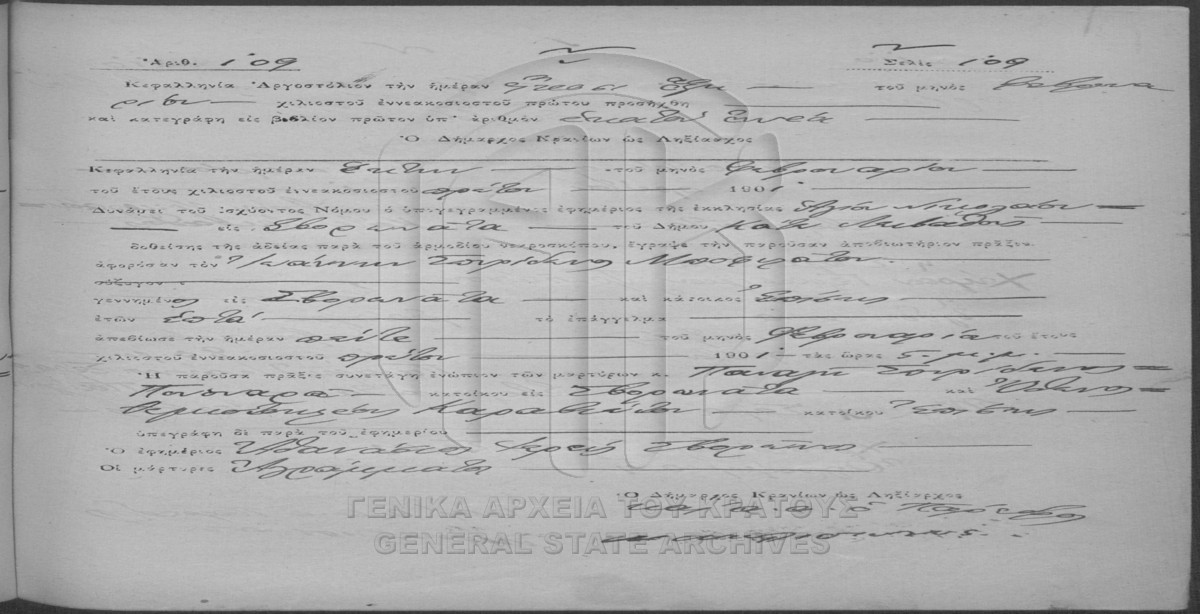 Ἀριθ. 109 Σελὶς 109
Κεφαλληνία Ἀργοστόλιον τὴν ἡμέραν εἴκοσι ἕξη τοῦ μηνὸς Φεβρουα
ρίου χιλιοστοῦ ἐννεακοσιοστοῦ πρώτου προσήχθη
καὶ κατεγράφη εἰς βιβλίον πρῶτον ὑπ' ἀριθμὸν ἑκατὸν ἐννέα
Ὁ Δήμαρχος Κρανίων ὡς Ληξίαρχος
Κεφαλληνία τὴν ἡμέραν ἕκτην τοῦ μηνὸς Φεβρουαρίου
τοῦ ἔτους χιλιοστοῦ ἐννεακοσιοστοῦ πρώτου 1901
Δυνάμει τοῦ ἰσχύοντος Νόμου ὁ ὑπογεγραμμένος ἐφημέριος τῆς ἐκκλησίας Ἁγίου Νικολάου
εἰς Σβορωνάτα τοῦ Δήμου
δοθείσης τῆς ἀδείας παρὰ τοῦ ἁρμοδίου νεκροσκόπου, ἔγραψε τὴν παροῦσαν ἀποβιωτήριον πρᾶξιν
ἀφορῶσαν τὸν Ἰωάννην Σπυρίδωνος
σύζυγον
γεννημένος εἰς Σβορωνάτα καὶ κάτοικος ἐπίσης
ἐτῶν ἑπτὰ τὸ ἐπάγγελμα
ἀπεβίωσε τὴν ἡμέραν πέντε τοῦ μηνὸς Φεβρουαρίου τοῦ ἔτους
χιλιοστοῦ ἐννεακοσιοστοῦ πρώτου 1901 τὰς ὥρας 5. μ.μ.
Ἡ παροῦσα πρᾶξις συνετάγη ἐνώπιον τῶν μαρτύρων κ. Παναγῆ Σπυρίδωνος
κατοίκου εἰς Σβορωνάτα καὶ
κατοίκου ἐπίσης
ὑπεγράφη δὲ παρὰ τοῦ ἐφημερίου
Ὁ ἐφημέριος Ἀθανάσιος Ἱερεὺς
Οἱ μάρτυρες Ἀγράμματοι
Ὁ Δήμαρχος Κρανίων ὡς Ληξίαρχος
ΓΕΝΙΚΑ ΑΡΧΕΙΑ ΤΟΥ ΚΡΑΤΟΥΣ
GENERAL STATE ARCHIVES